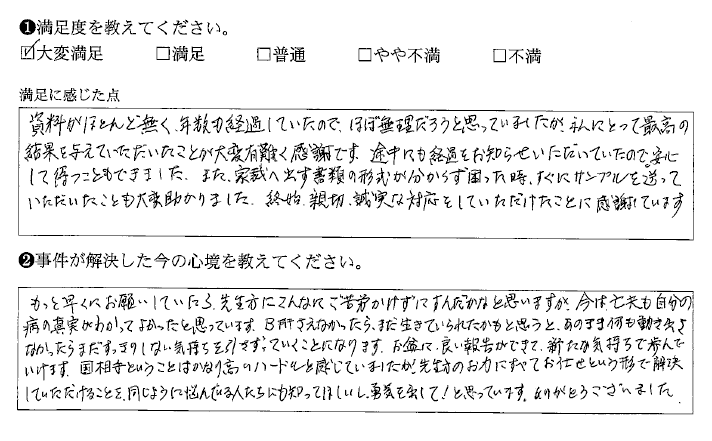 ❶満足度を教えてください。
☑大変満足 □満足 □普通 □やや不満 □不満
満足に感じた点
資料がほとんど無く、年数も経過していたので、ほぼ無理だろうと思っていましたが、私にとって最高の
結果を与えていただいたことが大変有難く感謝です。途中にも経過をお知らせいただいていたので、安心
して待つこともできました。また、家裁へ出す書類の形式が分からず困った時、すぐにサンプルを送って
いただいたことも大変助かりました。終始、親切、誠実な対応をしていただけたことに感謝しています
❷事件が解決した今の心境を教えてください。
もっと早くにお願いしていたら、先生方にこんなにご苦労かけずにすんだかなと思いますが、今は亡夫も自分の
病の真実がわかってよかったと思っています。B肝さえなかったら、まだ生きていられたかもと思うと、あのまま何も動き出さ
なかったらまだすっきりしない気持ちを引きずっていくことになります。お盆に、良い報告ができて、新たな気持ちで歩んで
いけます。国相手ということはかなり高いハードルと感じていましたが、先生方のお力にすべてお任せという形で解決
していただけることを、同じように悩んでいる人たちにも知ってほしいし、勇気を出して！と思っています。ありがとうございました